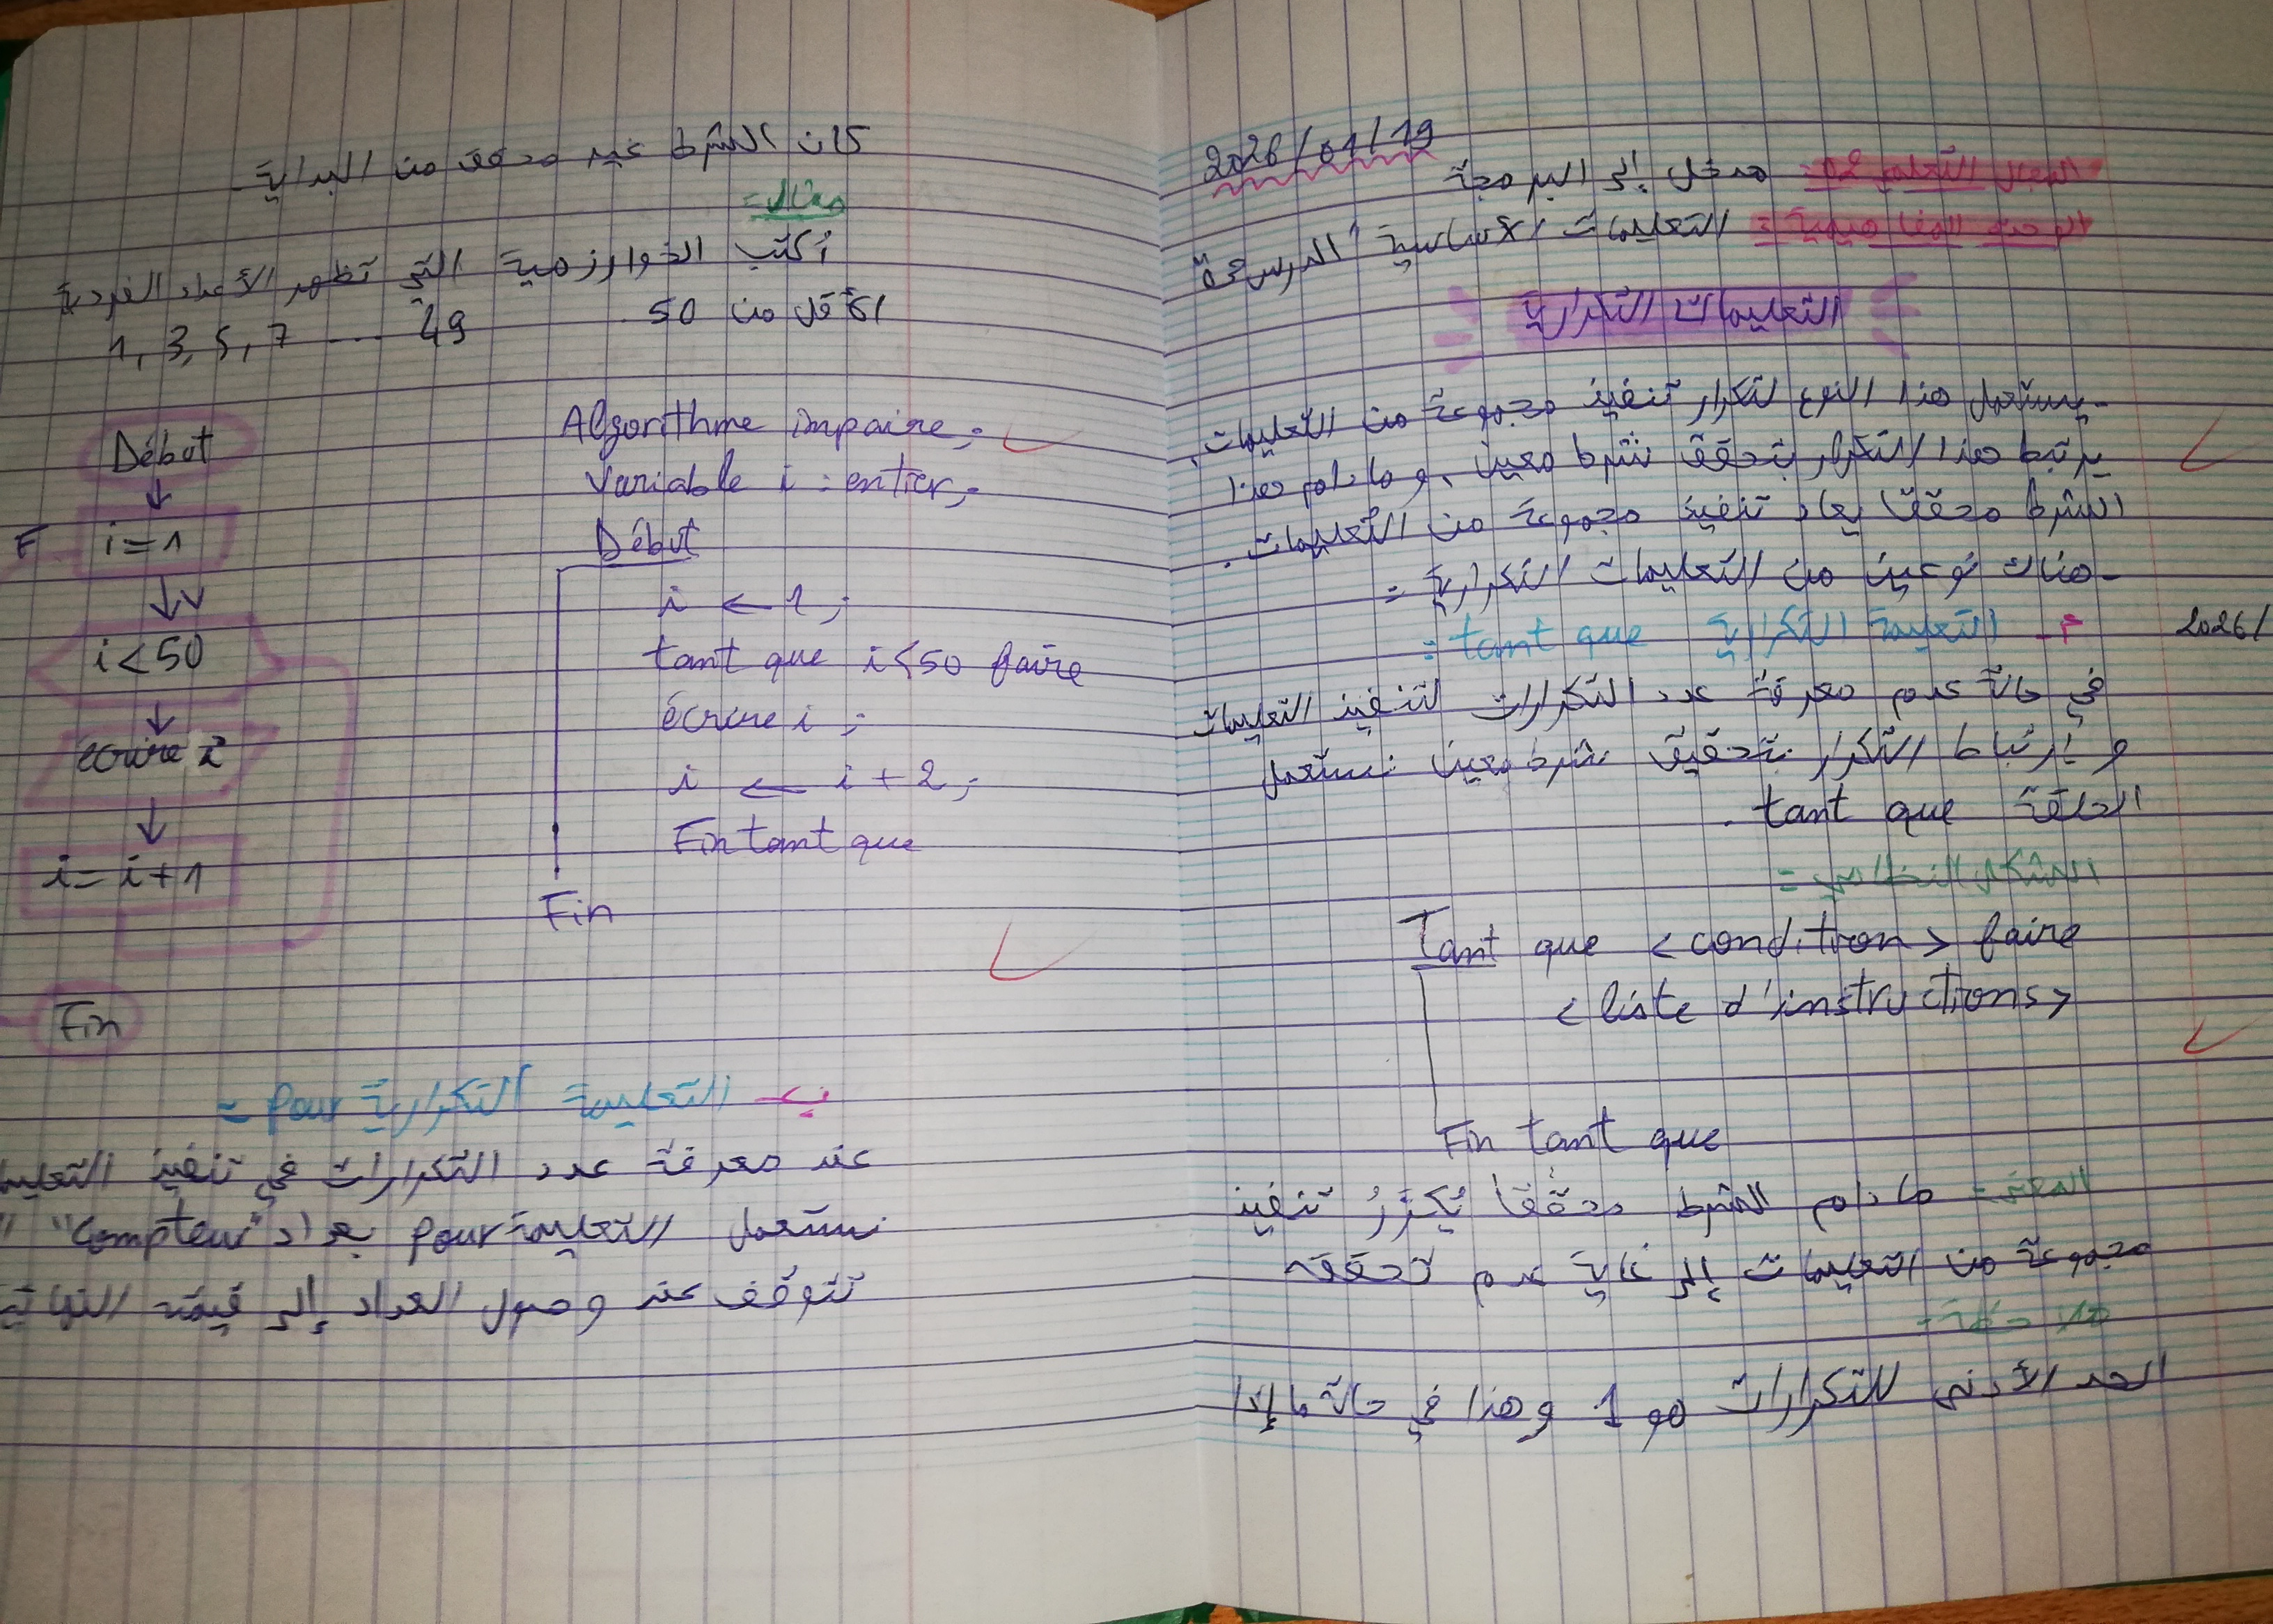 2026/01/19
المجال التعلمي 02: مدخل إلى البرمجة
الوحدة المفاهيمية: التعليمات الأساسية المبرمجة
التعليمات التكرارية
- يستعمل هذا النوع لتكرار تنفيذ مجموعة من التعليمات.
يرتبط هذا التكرار بتحقق شرط معين، وما دام هذا
الشرط محققا يعاد تنفيذ مجموعة من التعليمات.
- هناك نوعين من التعليمات التكرارية =
أ- التعليمة التكرارية tant que =
2026/
في حالة عدم معرفة عدد التكرارات لتنفيذ التعليمات
و ارتباط التكرار بتحقيق شرط معين نستعمل
الحلقة tant que .
الشكل النظامي =
Tant que <condition> faire
<liste d'instructions>
Fin tant que
المعنى = ما دام الشرط محققا يُكرَّرُ تنفيذ
مجموعة من التعليمات إلى غاية عدم تحققه
ملاحظة =
الحد الأدنى للتكرارات هو 1 وهذا في حالة ما إذا
كان الشرط غير محقق من البداية.
مثال =
أكتب الخوارزمية التي تظهر الأعداد الفردية
الأقل من 50
1, 3, 5, 7 .... 49
Début
F
i = 1
V
i < 50
ecrire i
i = i + 1
Fin
Algorithme impaire;
Variable i : entier;
Début
i ← 1;
tant que i<50 faire
écrire i;
i ← i + 2;
Fin tant que
Fin
ب- التعليمة التكرارية pour =
عند معرفة عدد التكرارات في تنفيذ
نستعمل التعليمة pour بعداد "Compteur"
تتوقف عند وصول العداد إلى قيمته